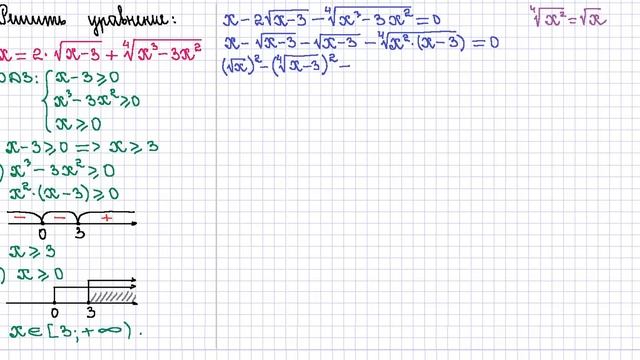 Решить уравнение:
x = 2·√(x-3) + ∜(x³-3x²)
ОДЗ: { x-3⩾0
x³-3x²⩾0
x⩾0
x-3⩾0 => x⩾3
) x³-3x²⩾0
x²·(x-3)⩾0
- - +
0 3
x⩾3
) x⩾0
0 3
x∈[3;+∞).
x-2√(x-3) - ∜(x³-3x²) = 0
x-√(x-3) - √(x-3) - ∜(x²·(x-3)) = 0
(√x)² - (∜(x-3))² -
∜(x²) = √x